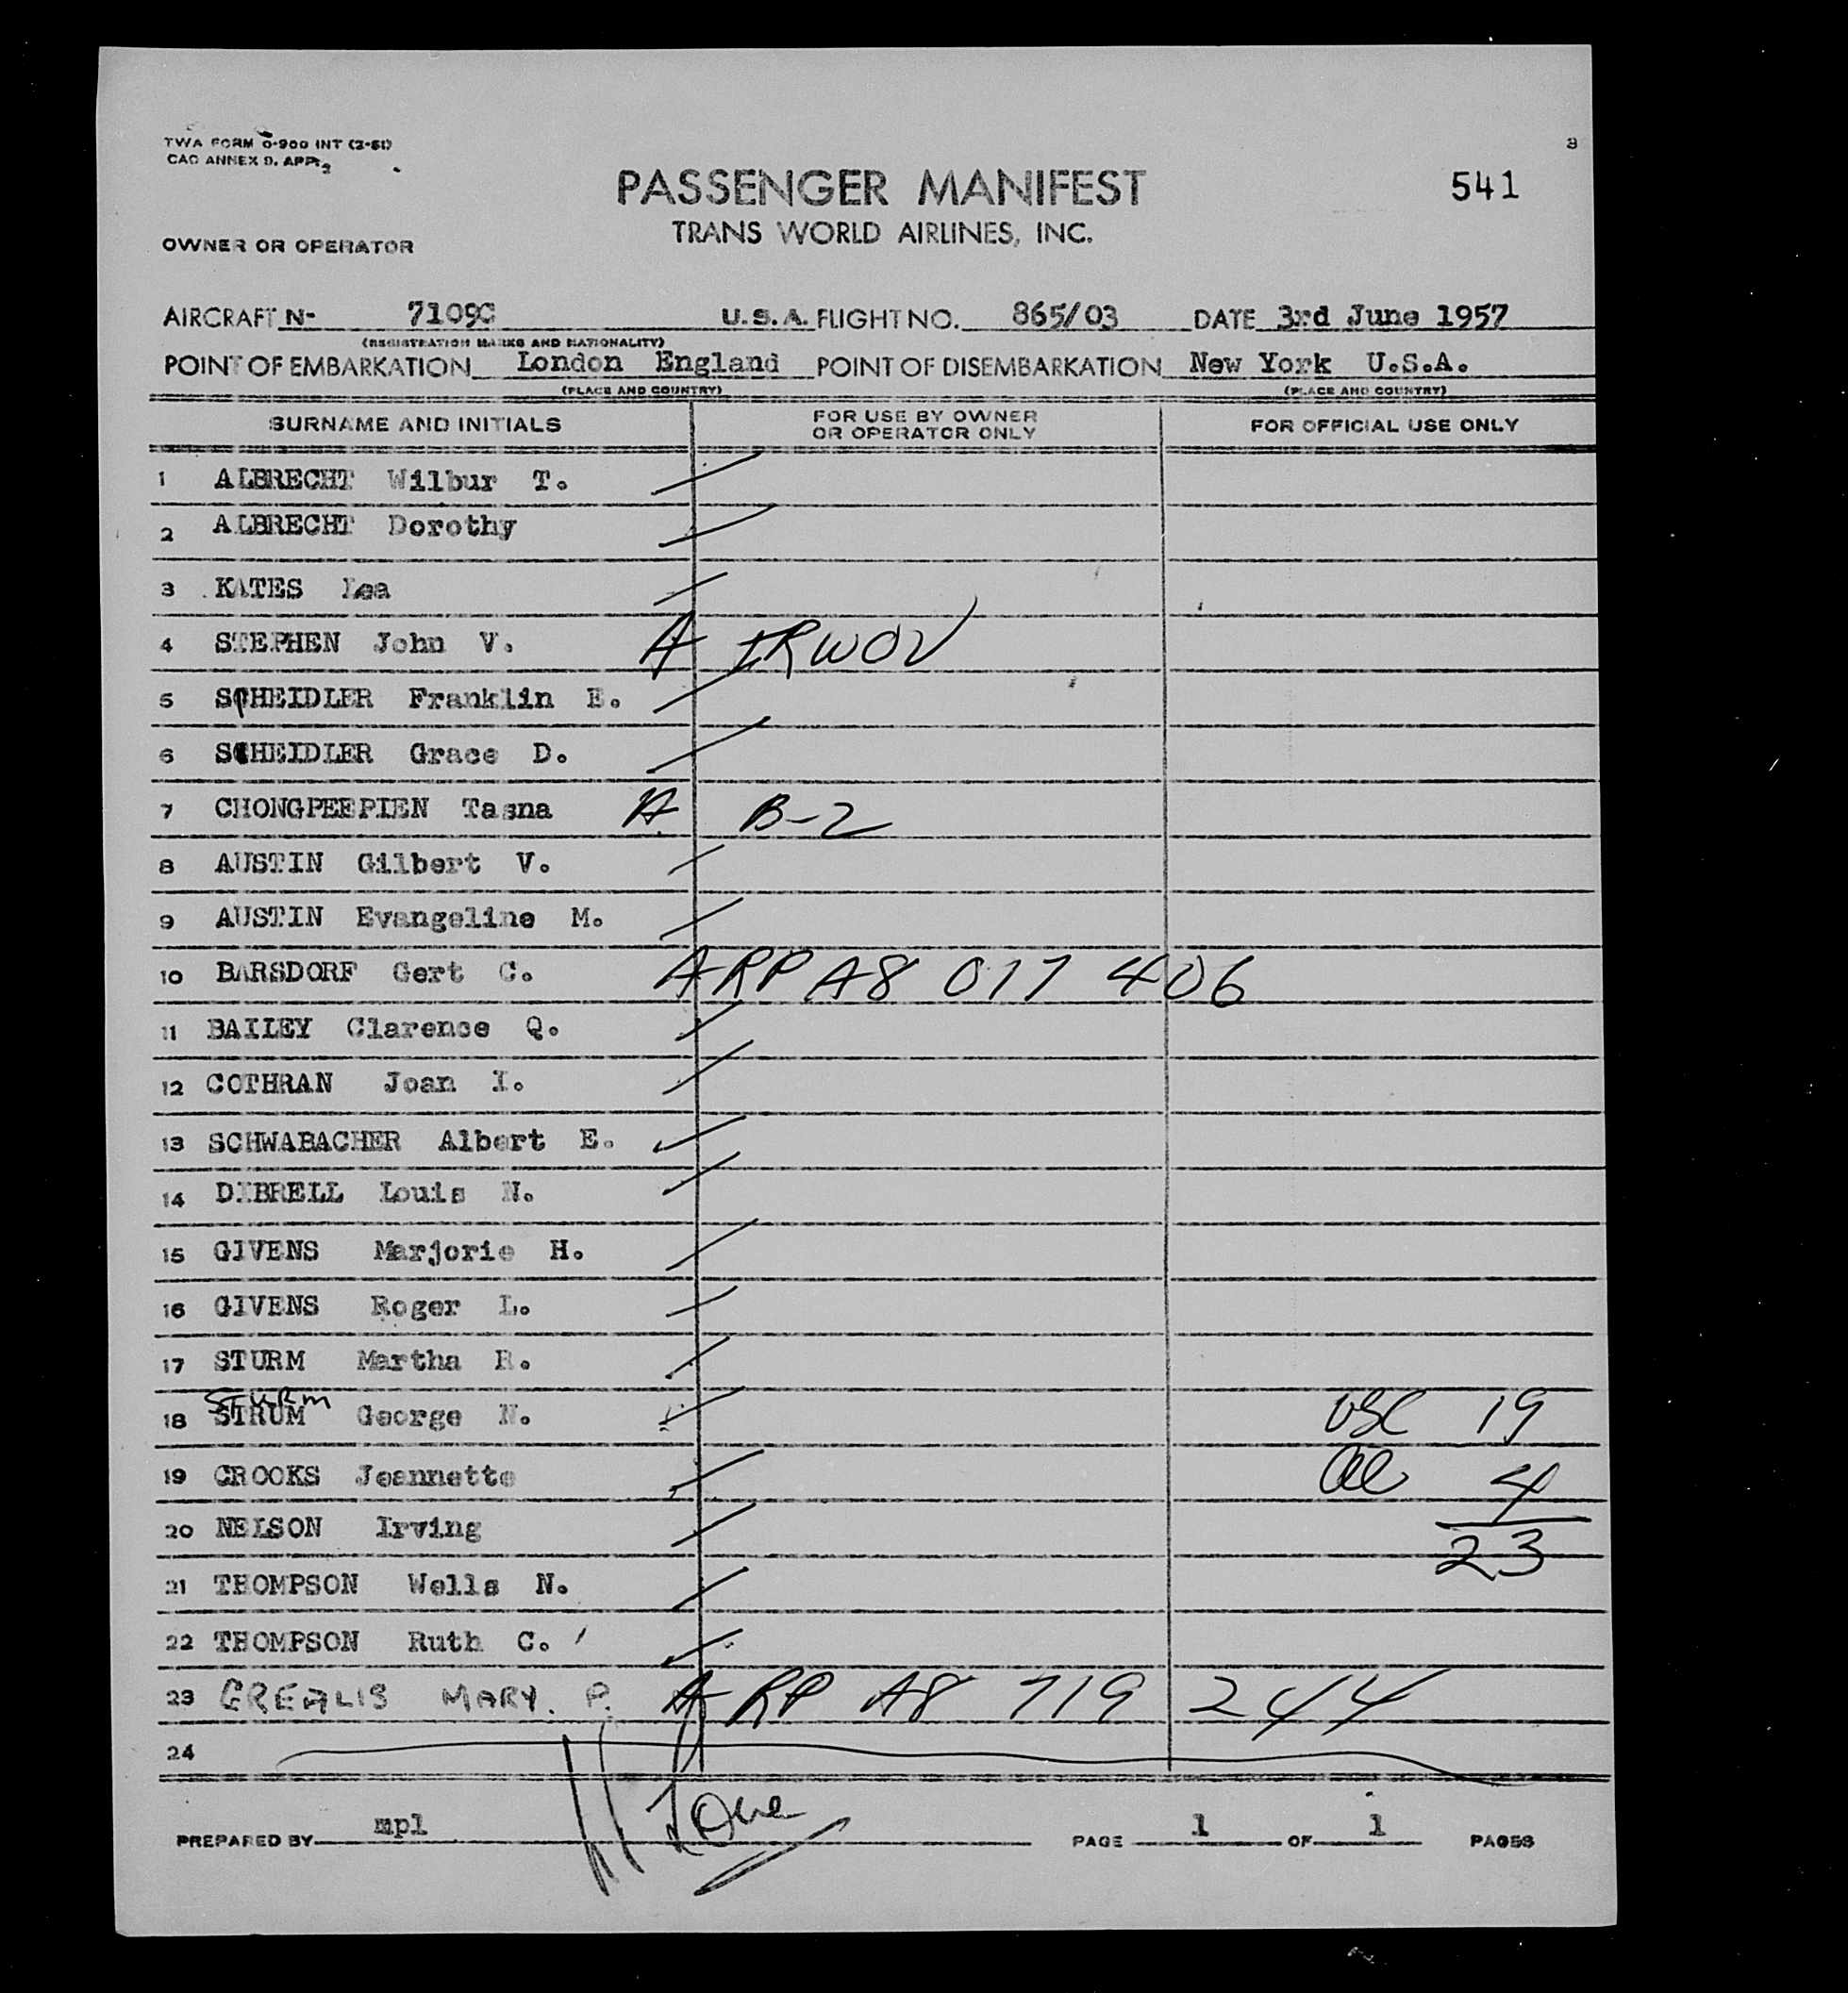 TWA FORM O-900 INT (2-51)
CAO ANNEX 9. APP. 2
3
PASSENGER MANIFEST
541
TRANS WORLD AIRLINES, INC.
OWNER OR OPERATOR
AIRCRAFT N- 7109C U.S.A. FLIGHT NO. 865/03 DATE 3rd June 1957
(REGISTRATION MARKS AND NATIONALITY)
POINT OF EMBARKATION London England POINT OF DISEMBARKATION New York U.S.A.
(PLACE AND COUNTRY) (PLACE AND COUNTRY)
SURNAME AND INITIALS FOR USE BY OWNER OR OPERATOR ONLY FOR OFFICIAL USE ONLY
1 ALBRECHT Wilbur T.
2 ALBRECHT Dorothy
3 KATES Lea
4 STEPHEN John V. A IRWOV
5 SCHEIDLER Franklin E.
6 SCHEIDLER Grace D.
7 CHONGPEEPIEN Tasna A B-2
8 AUSTIN Gilbert V.
9 AUSTIN Evangeline M.
10 BARSDORF Gert C. A RP A8 017 406
11 BAILEY Clarence Q.
12 COTHRAN Joan I.
13 SCHWABACHER Albert E.
14 DIBRELL Louis N.
15 GIVENS Marjorie H.
16 GIVENS Roger L.
17 STURM Martha R.
STURM
18 STRUM George N. USC 19
19 CROOKS Jeannette al 4
20 NELSON Irving 23
21 THOMPSON Wells N.
22 THOMPSON Ruth C.
23 GREALIS MARY. P. A RP A8 719 244
24
PREPARED BY mpl PAGE 1 OF 1 PAGES